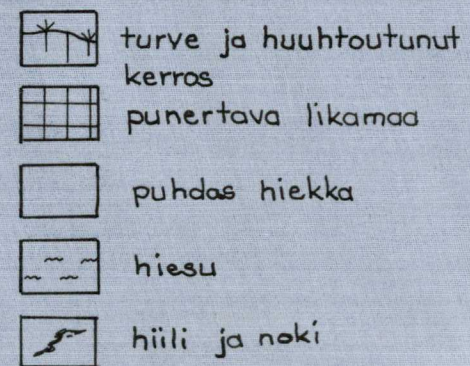 turve ja huuhtoutunut
kerros
punertava likamaa
puhdas hiekka
hiesu
hiili ja noki